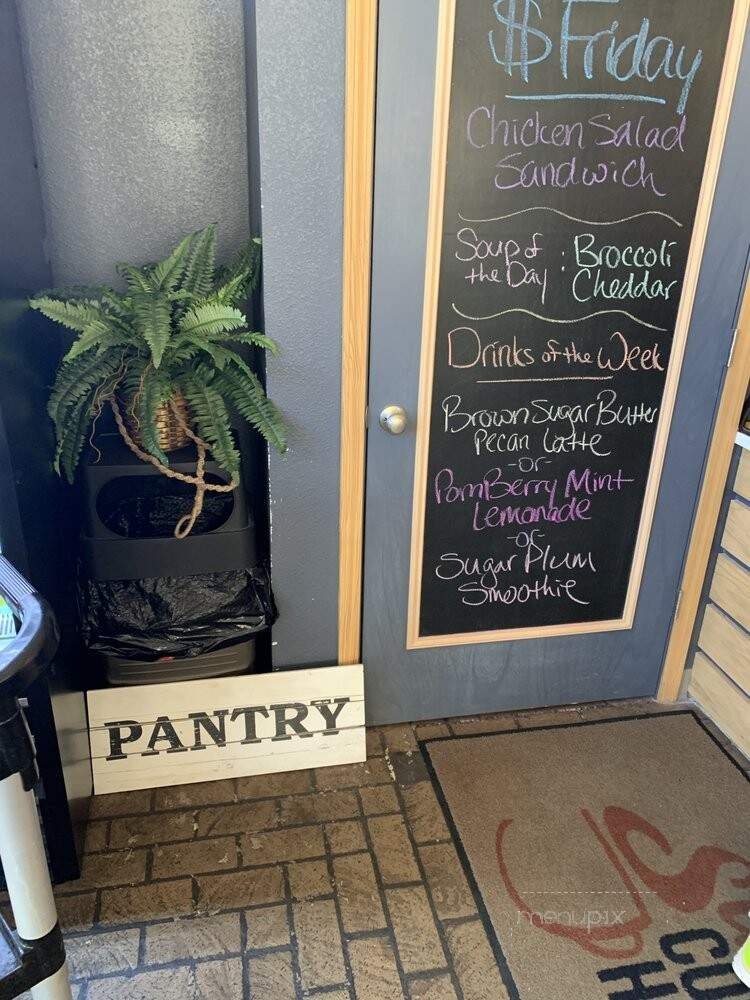 $ Friday
Chicken Salad
Sandwich
Soup of
the Day : Broccoli
Cheddar
Drinks of the Week
Brown Sugar Butter
Pecan Latte
-or-
PomBerry Mint
Lemonade
-or-
Sugar Plum
Smoothie
PANTRY
menupix